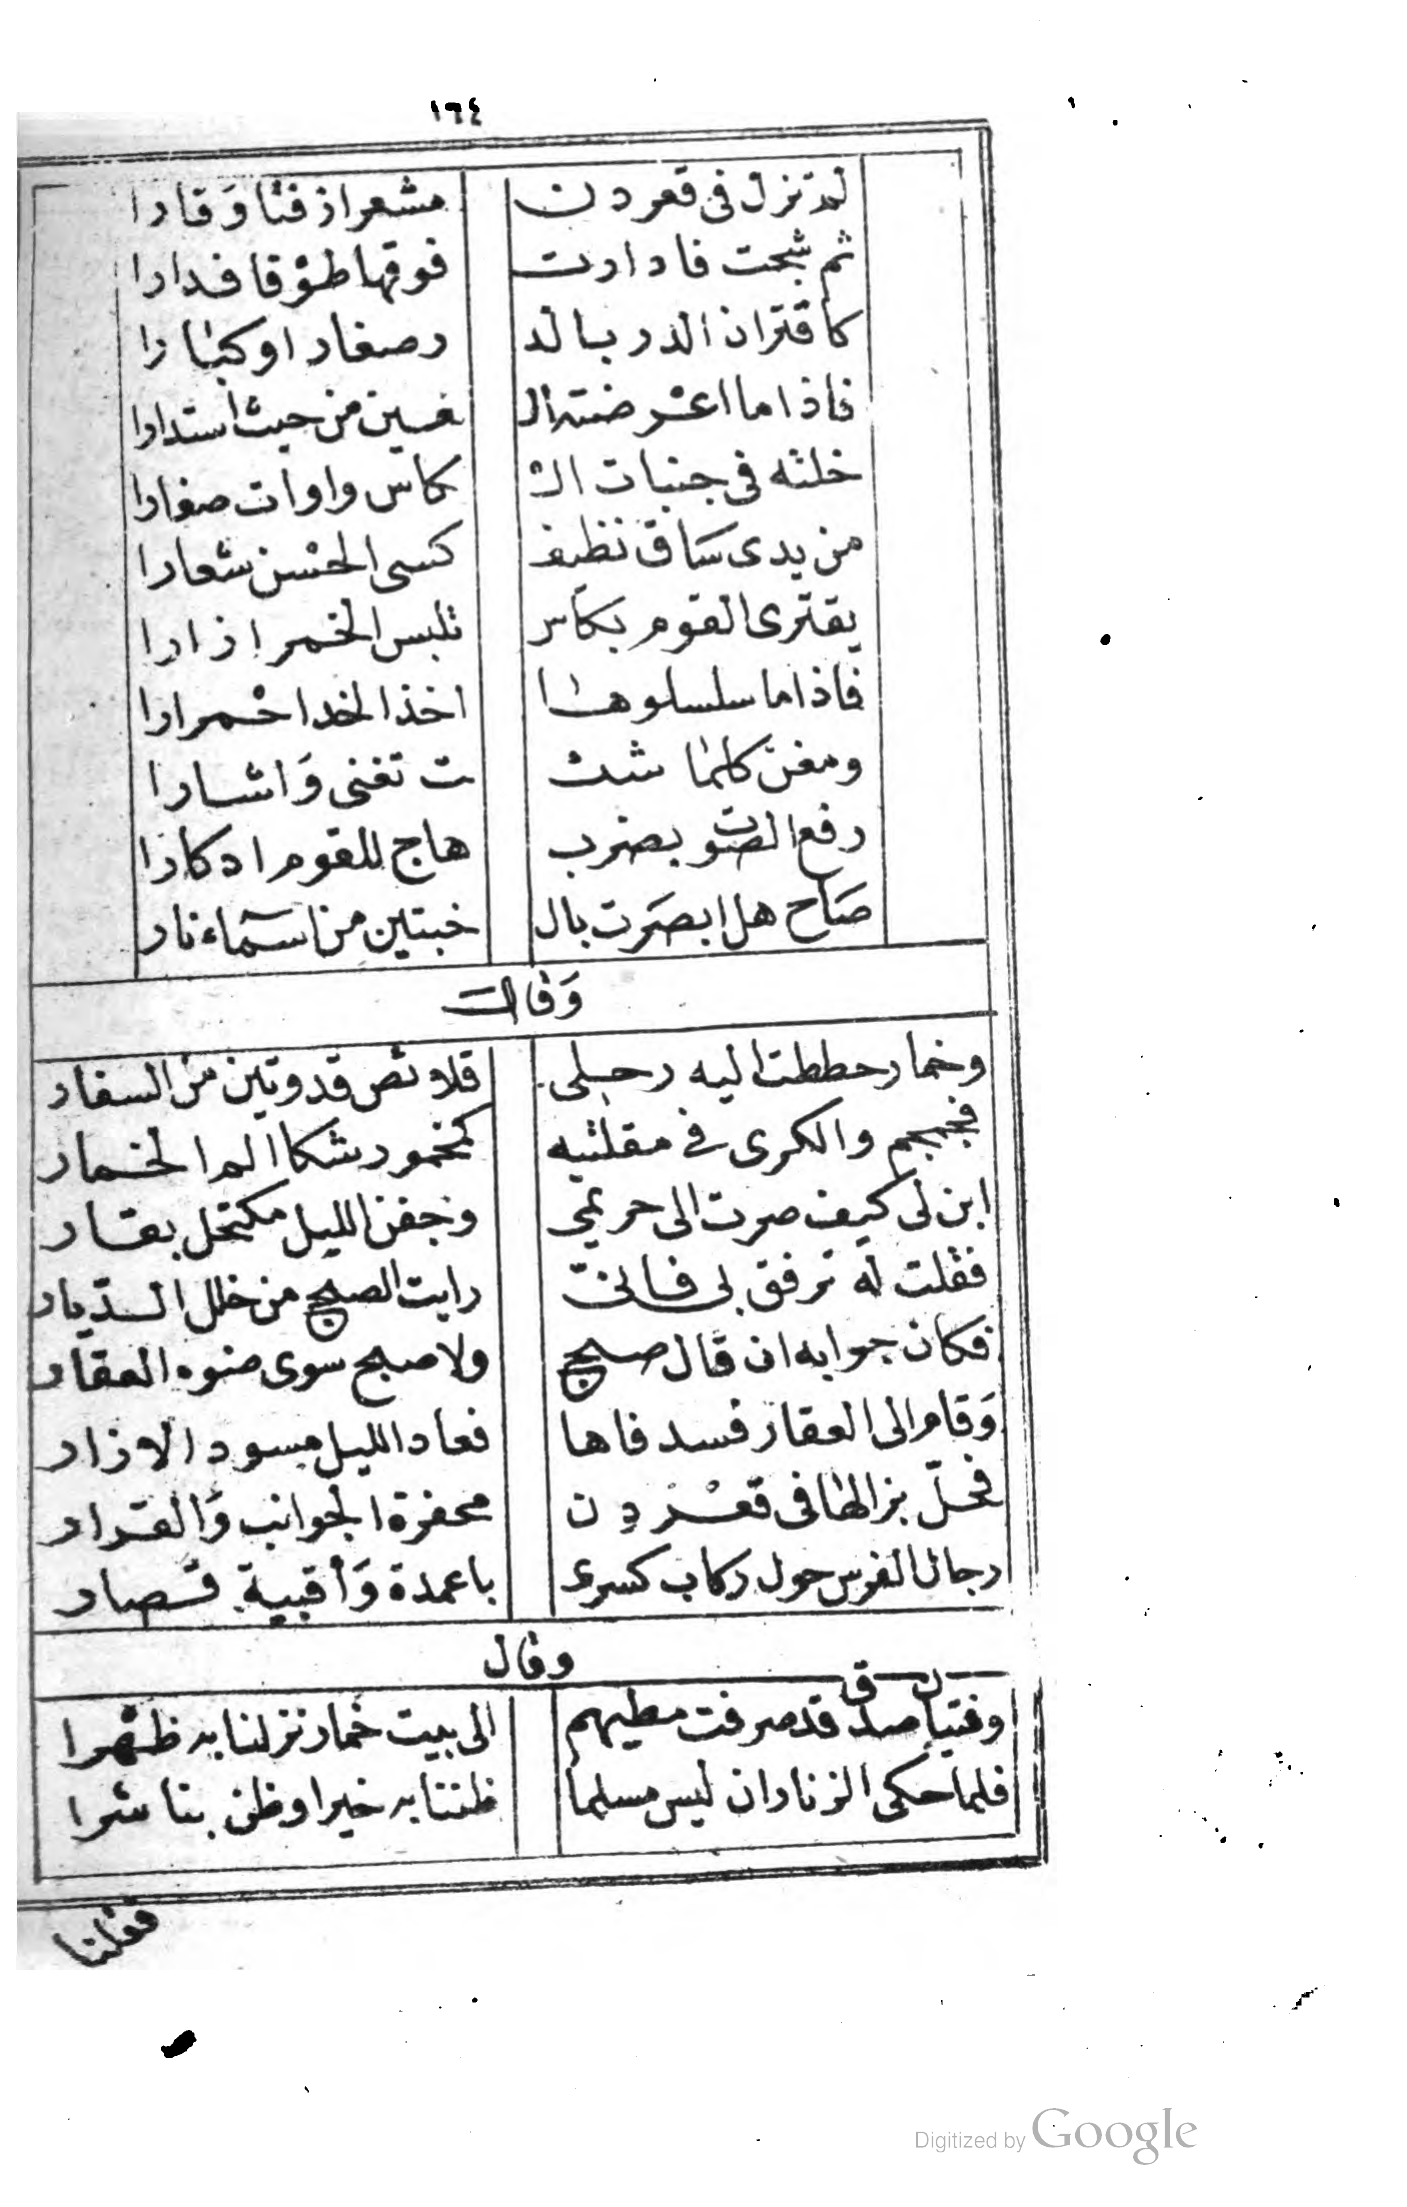 ١٦٤
لم تزل فى قعر دن مشعرا زفتا وقارا
ثم شجت فادارت فوقها طوقا فدارا
كاقتران الدر بالد ر صغارا وكبارا
فاذا ما اعترضته ال عين من حيث استدارا
خلته فى جنبات ال كاس واوات صغارا
من يدى ساق نظيف كسى الحسن شعارا
يقترى القوم بكاس تلبس الخمر ازارا
فاذا ما سلسلوها اخذ الخد احمرارا
ومغن كلما شئ ت تغنى واشارا
رفع الصوت بصرب هاج للقوم ادكارا
صاح هل ابصرت بال خبتين من اسماء نار
وقال
وخمار حططت اليه رحلى قلائص قد ونين من السفار
فجمجم والكرى فى مقلتيه كمخمور شكا الم الخمار
ابن لى كيف صرت الى حريمى وجفن الليل مكتحل بقار
فقلت له ترفق بى فانى رايت الصبح من خلل الديار
فكان جوابه ان قال صبح ولا صبح سوى ضوء العقار
وقام الى العقار فسد فاها فعاد الليل مسود الازار
فحل بزالها فى قعر دن محفرة الجوانب والقرار
رجال الفرس حول ركاب كسرى باعمدة وأقبية قصار
وقال
وفتيان صدق قد صرفت مطيهم الى بيت خمار نزلنا به ظهرا
فلما حكى الزنار ان ليس مسلما ظننا به خيرا وظن بنا شرا
فقلنا
Digitized by Google